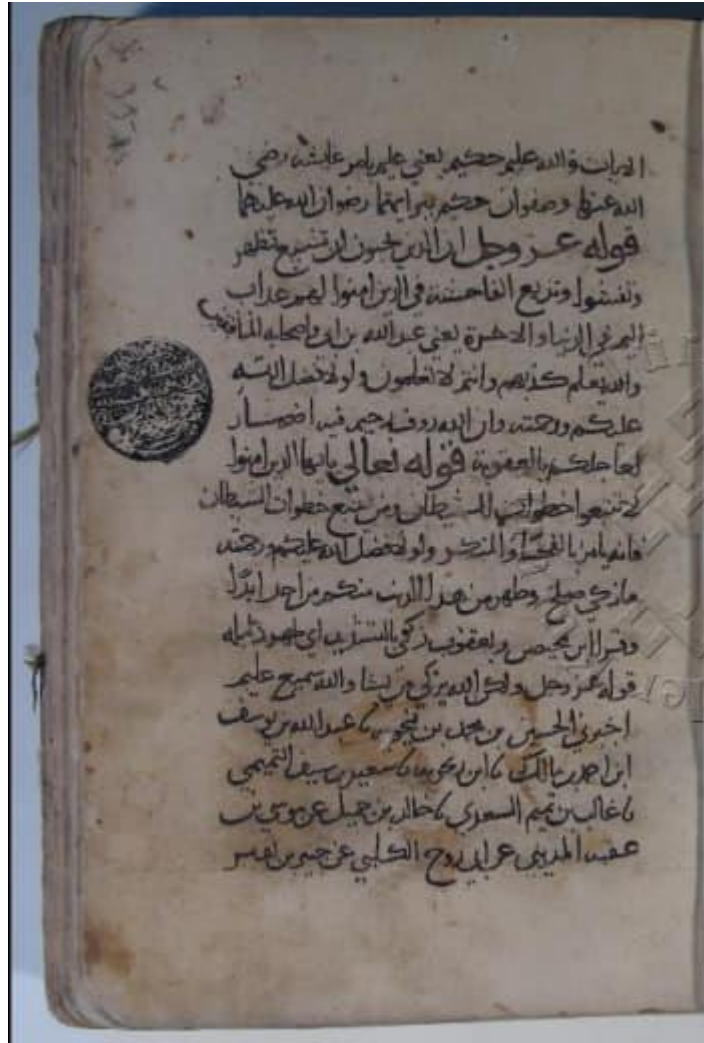 الايات والله عليم حكيم يعني عليم بامر عايشه رضي
الله عنها وصفوان حكيم ببراتهما رضوان الله عليهما
قوله عز وجل ان الذين يحبون ان تشيع تظهر
وتفشوا وتذيع الفاحشة في الذين امنوا لهم عذاب
اليم في الدنيا والاخرة يعني عبد الله بن ابي واصحابه المنافقين
والله يعلم كذبهم وانتم لا تعلمون ولولا فضل الله
عليكم ورحمته وان الله روف رحيم فيه اضمار
لعاجلكم بالعقوبة قوله تعالى يا ايها الذين امنوا
لا تتبعوا خطوات الشيطان ومن يتبع خطوات الشيطان
فانه يامر بالفحشا والمنكر ولولا فضل الله عليكم ورحمته
ما زكي صلح وطهر من هذا الذنب منكم من احد ابدا
وقرا ابن محيصن ويعقوب زكي بالتشديد اي طهر دليله
قوله عز وجل ولكن الله يزكي من يشا والله سميع عليم
اخبرني الحسين بن محمد بن فنجويه نا عبد الله بن يوسف
ابن احمد بن مالك نا ابن نا سعيد بن سيف التميمي
نا غالب بن تميم السعدي نا خالد بن جميل عن موسى بن
عقبه المديني عن ابي روح الكلبي عن